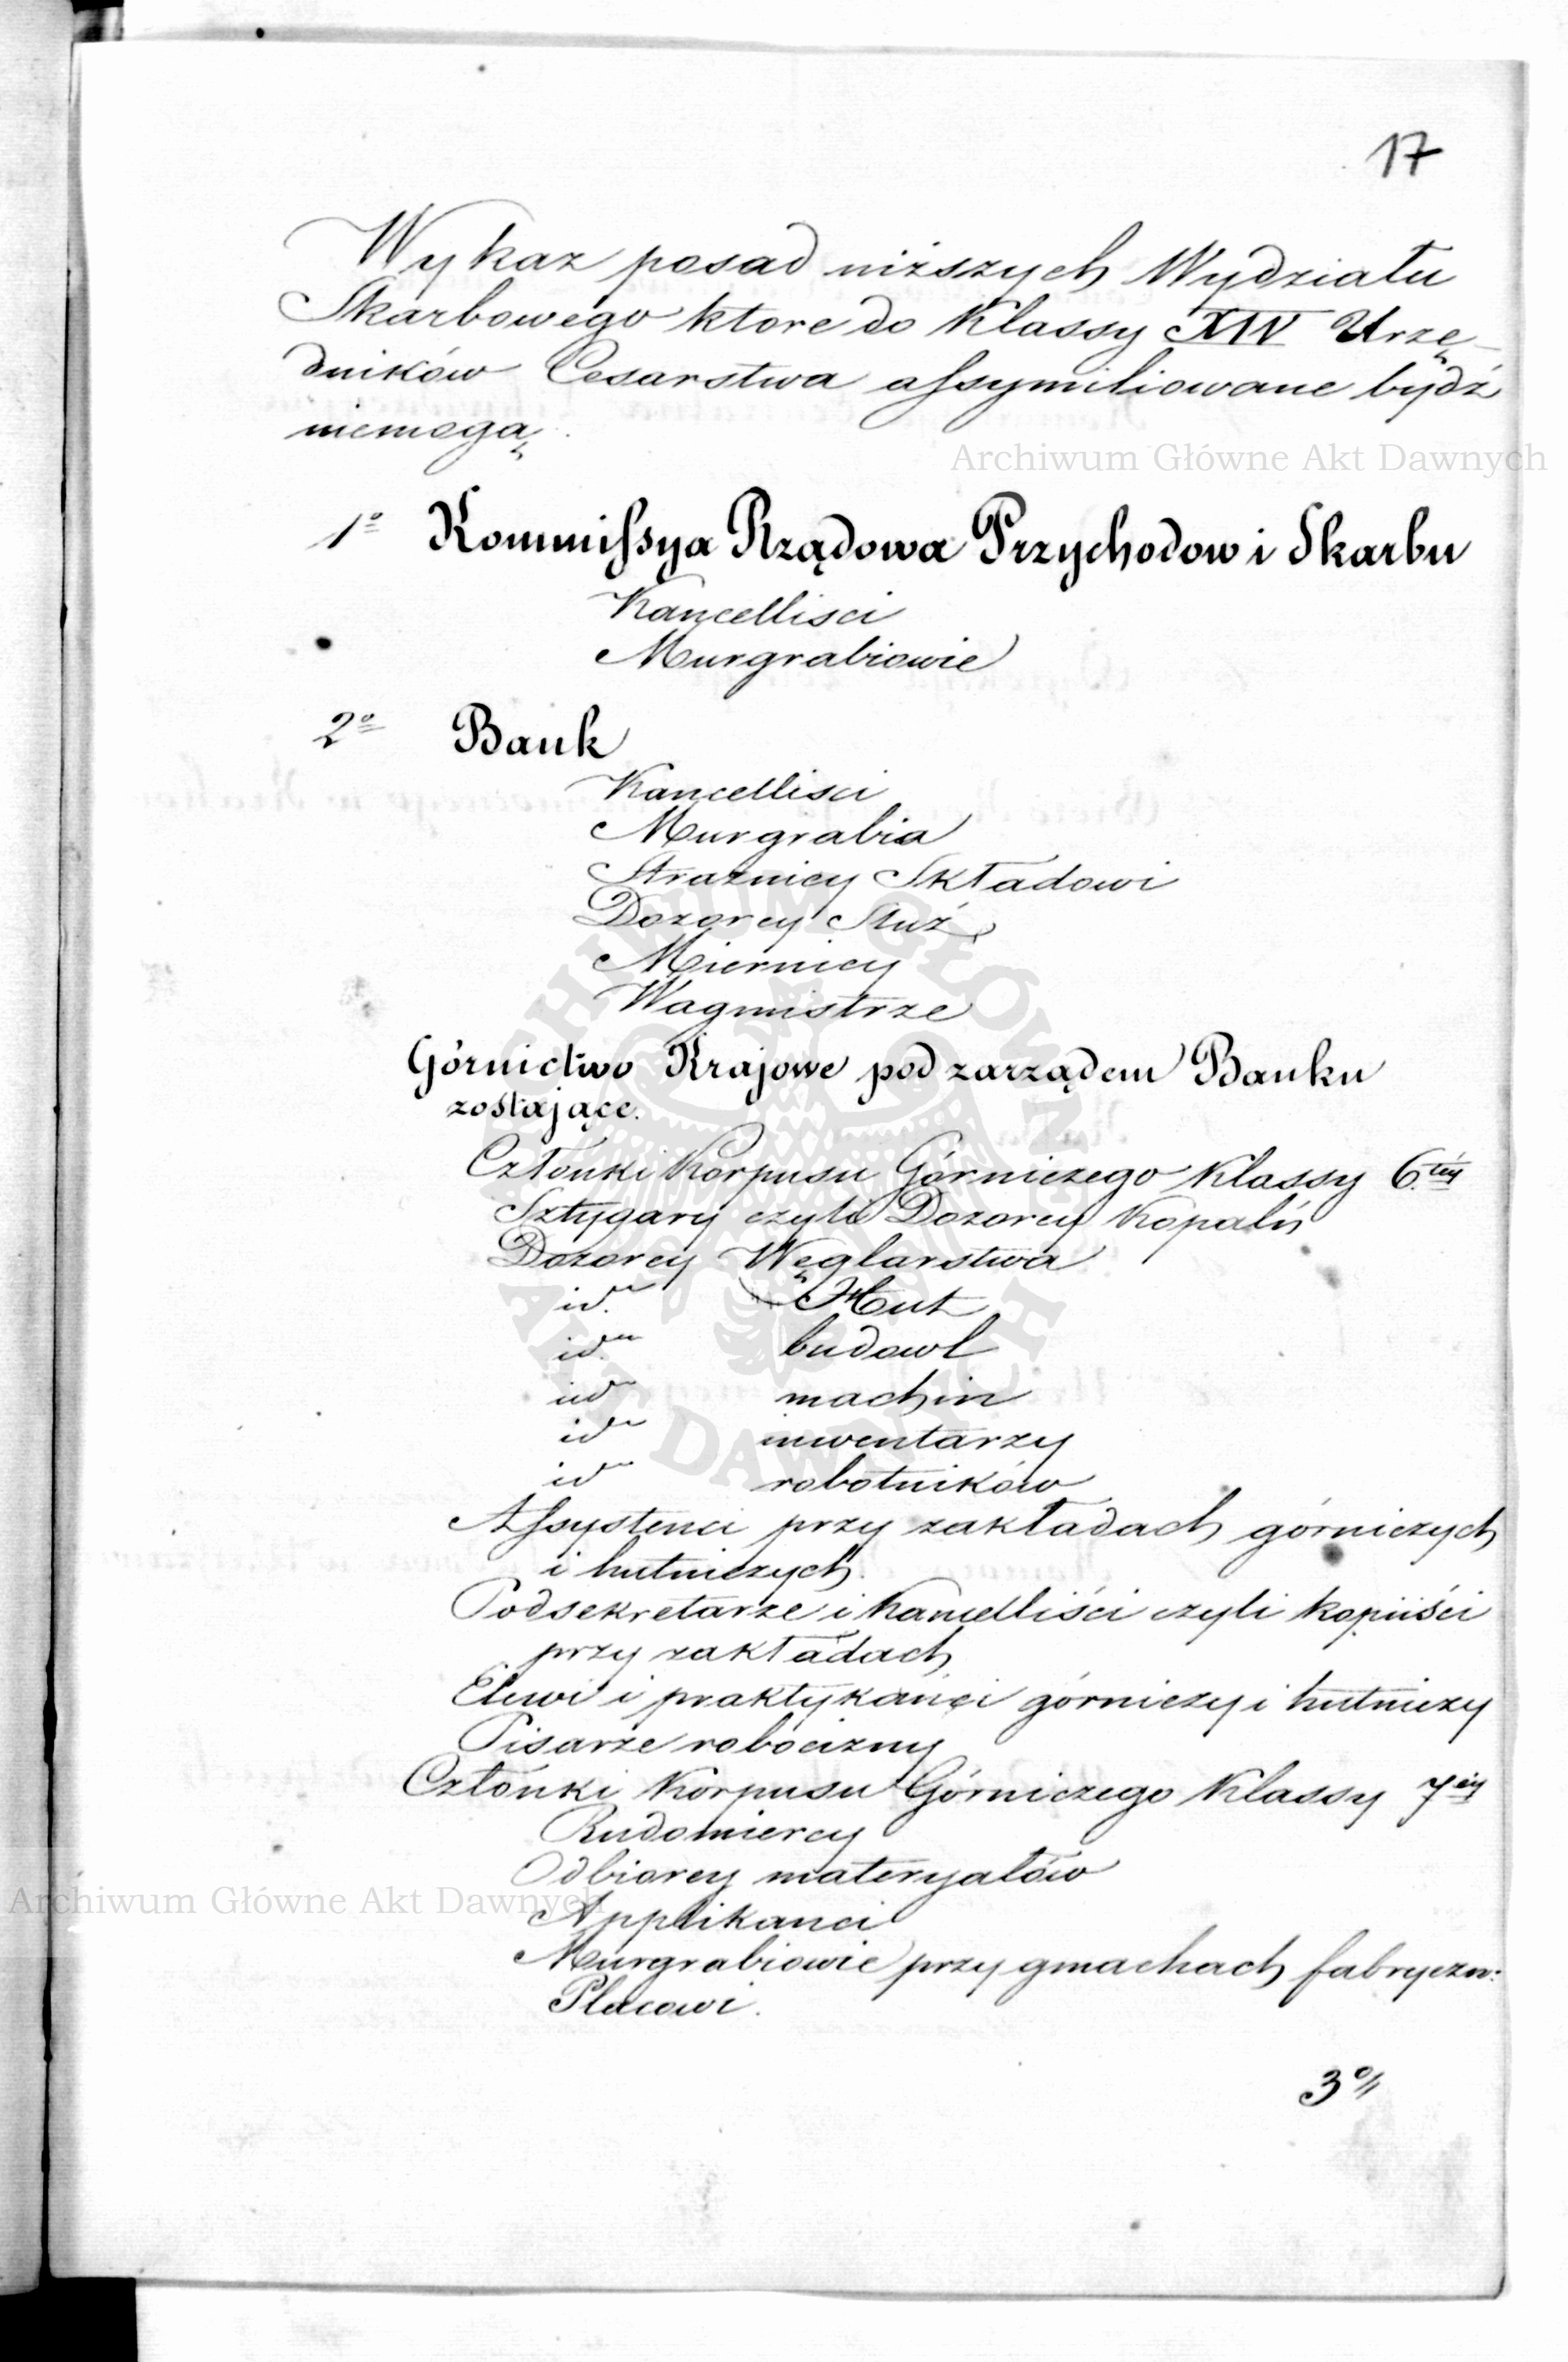 17
Wykaz posad niższych Wydziału
Skarbowego ktore do Klassy XIV Urzę-
dników Cesarstwa assymiliowane bydź
niemogą.
Archiwum Główne Akt Dawnych
1o Kommissya Rządowa Przychodow i Skarbu
Kancellisci
Murgrabiowie
2o Bank
Kancellisci
Murgrabia
Straznicy Składowi
Dozorcy Służ
Miernicy
Wagmistrze
Górnictwo Krajowe pod zarządem Banku
zostające.
Członki Korpusu Górniczego Klassy 6.téy
Sztygary czyli Dozorcy Kopalń
Dozorcy Węglarstwa
id. Hut
id. budowl
id machin
id inwentarzy
id robotników
Assystenci przy zakładach górniczych
i hutniczych.
Podsekretarze i Kancelliści czyli kopiiści
przy zakładach
Elewi i praktykanci górniczy i hutniczy
Pisarze robocizny
Członki Korpusu Górniczego Klassy 7éy
Rudomiercy
Odbiorcy materyałów
Archiwum Główne Akt Dawnych
Applikanci
Murgrabiowie przy gmachach fabryczn:
Placowi.
3o/
ARCHIWUM GŁÓWNE AKT DAWNYCH